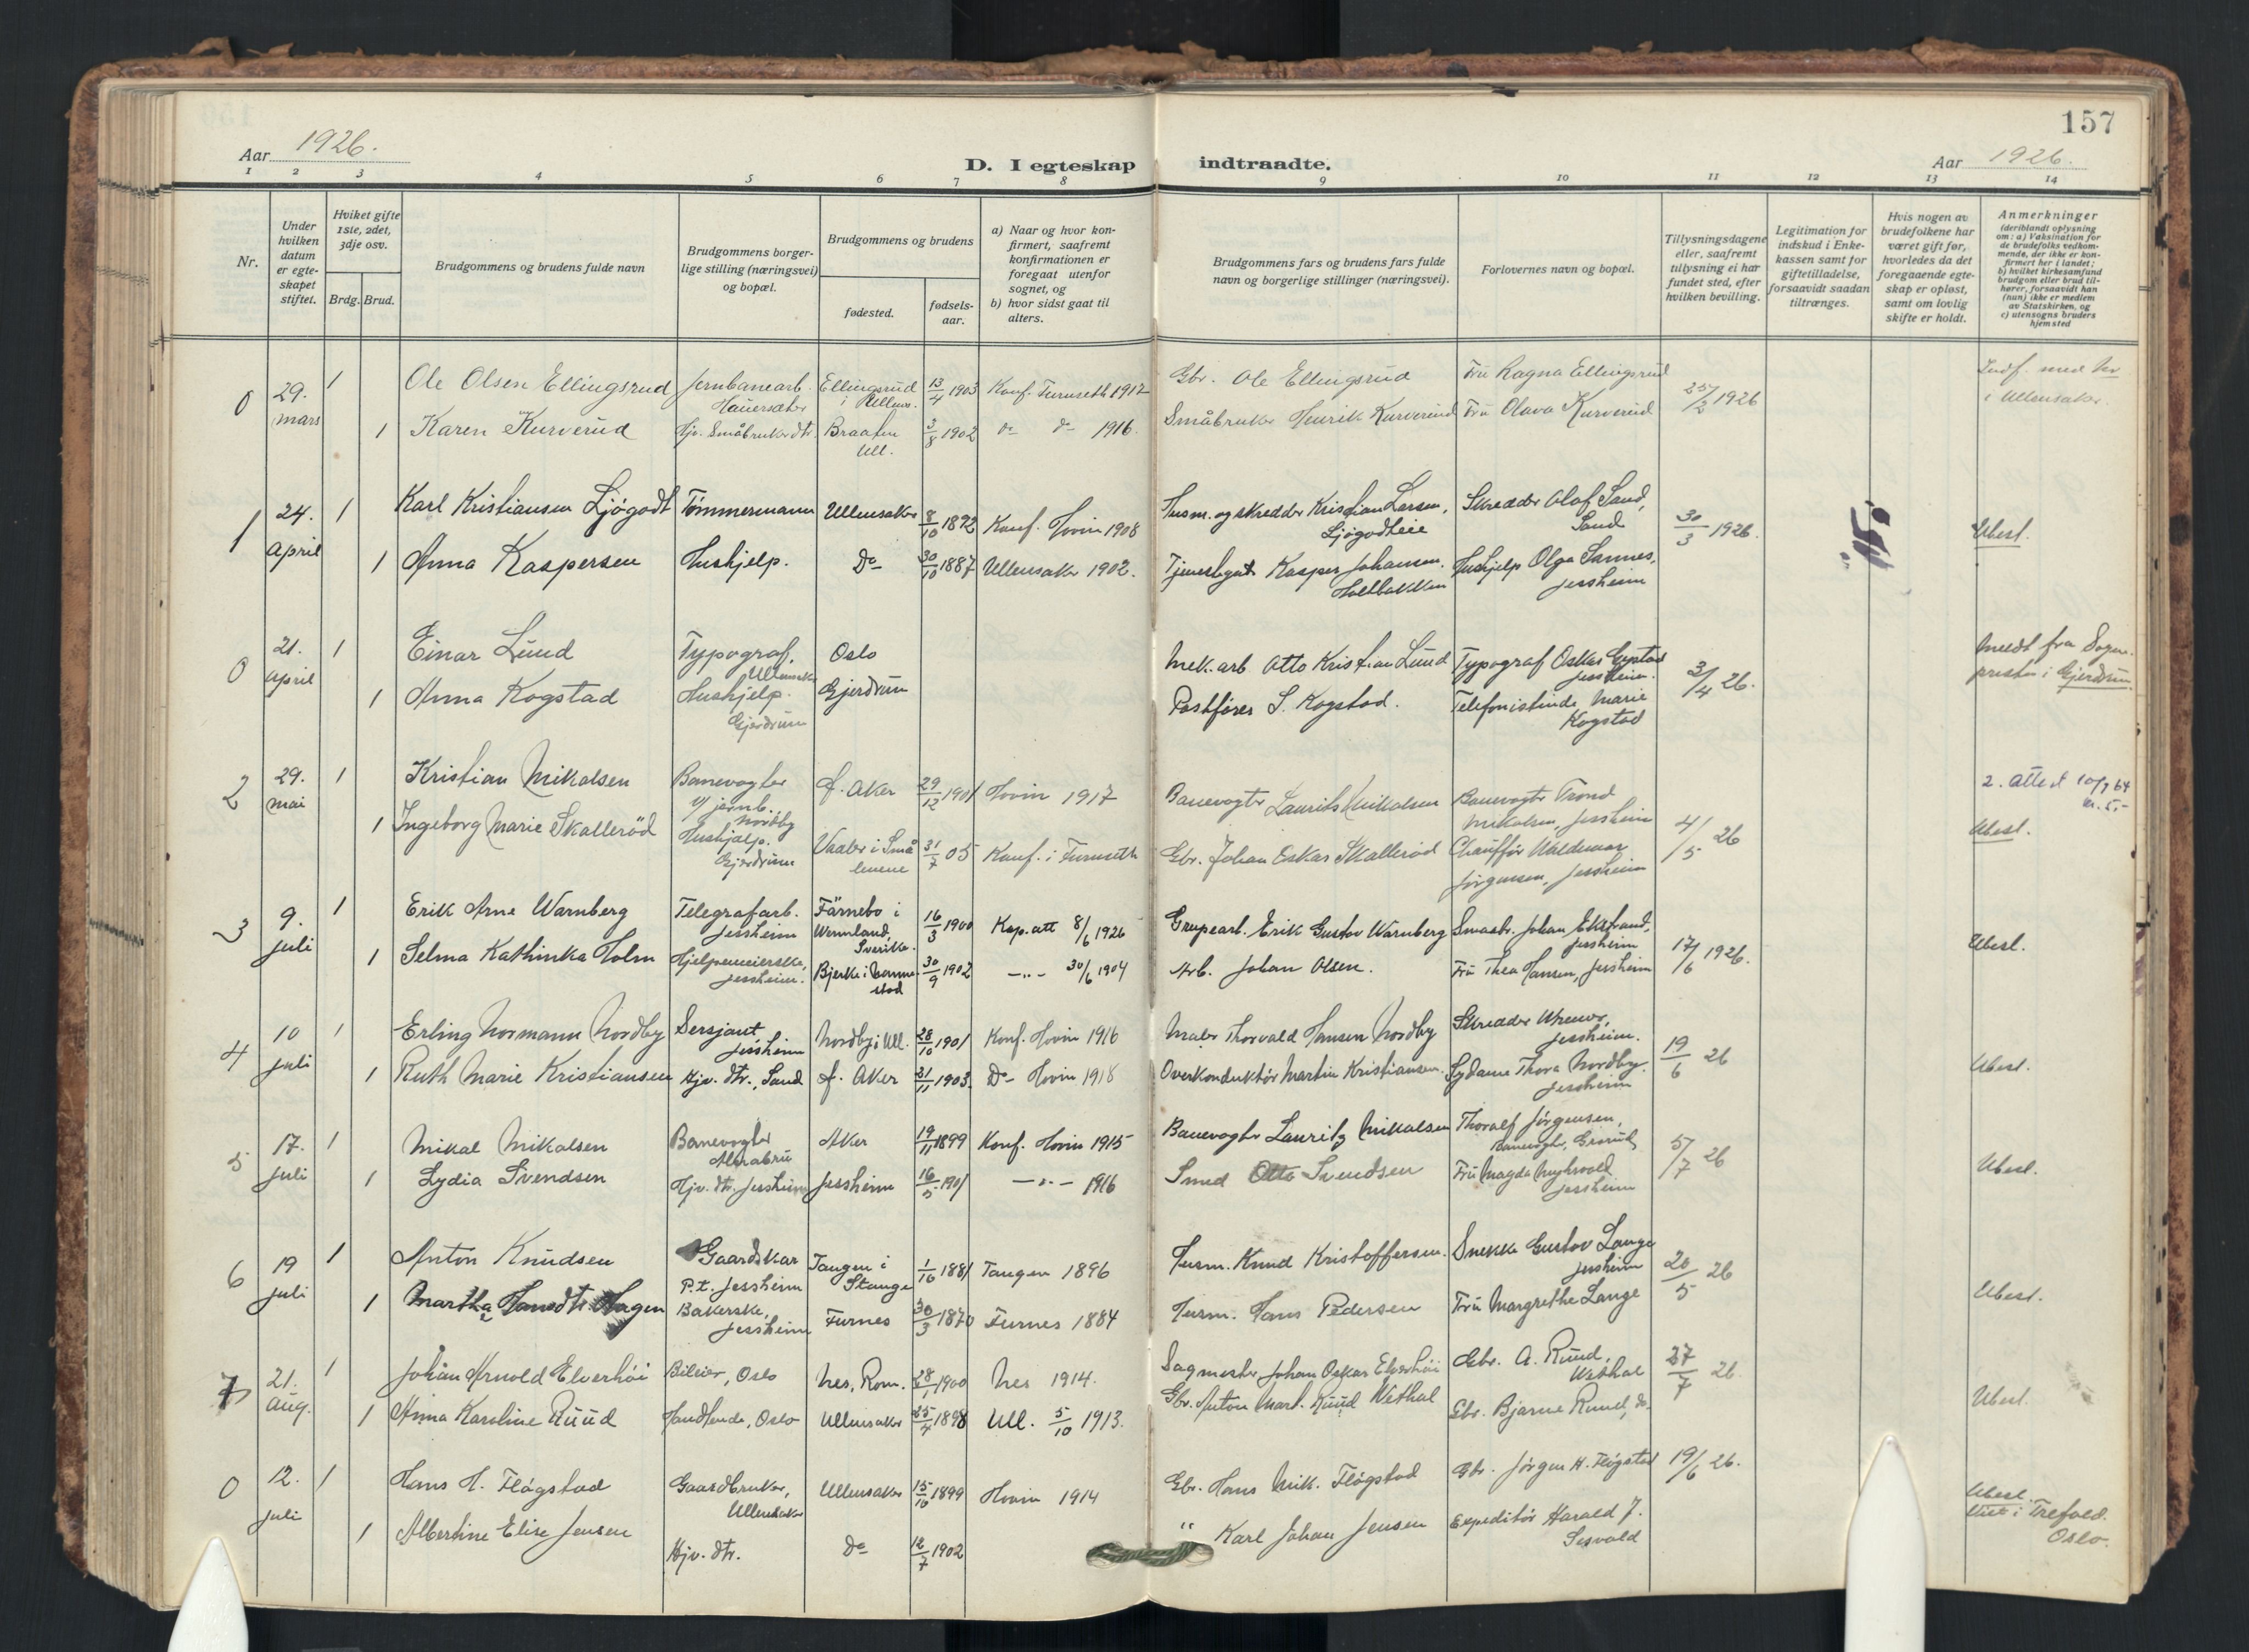 157
Aar 1926.
D. I egteskap indtraadte.
Aar 1926.
1 2 3 4 5 6 7 8 9 10 11 12 13 14
Nr.
Under hvilken datum er egteskapet stiftet.
Hviket gifte 1ste, 2det, 3dje osv.
Brdg. Brud.
Brudgommens og brudens fulde navn
Brudgommens borgerlige stilling (næringsvei) og bopæl.
Brudgommens og brudens
fødested.
fødselsaar.
a) Naar og hvor konfirmert, saafremt konfirmationen er foregaat utenfor sognet, og
b) hvor sidst gaat til alters.
Brudgommens fars og brudens fars fulde navn og borgerlige stillinger (næringsvei).
Forlovernes navn og bopæl.
Tillysningsdagene eller, saafremt tillysning ei har fundet sted, efter hvilken bevilling.
Legitimation for indskud i Enkekassen samt for giftetilladelse, forsaavidt saadan tiltrænges.
Hvis nogen av brudefolkene har været gift før, hvorledes da det foregaaende egteskap er opløst, samt om lovlig skifte er holdt.
Anmerkninger
(deriblandt oplysning om: a) Vaksination for de brudefolks vedkommende, der ikke er konfirmert her i landet; b) hvilket kirkesamfund brudgom eller brud tilhører, forsaavidt han (hun) ikke er medlem av Statskirken, og c) utensogns bruders hjemsted
0 29. mars 1 Ole Olsen Ellingsrud Jernbanearb. Hauersæter Ellingsrud i Ullens. 13/4 1903 Konf. Furuseth 1917 Gbr. Ole Ellingsrud Fru Ragna Ellingsrud 25/2 1926 Indf. med
1 Karen Kurverud Hjv. Småbruker dtr. Braaten Ull. 3/8 1902 do do 1916. Småbruker Henrik Kurverud Fru Olava Kurverud i Ullensaker.
1 24. april 1 Karl Kristiansen Ljøgodt Tømmermann Ullensaker 8/10 1892 Konf. Hovin 1908 Husm. og skredder Kristian Larsen, Ljøgodteie Skredder Olaf Sand, Sand 30/3 1926. "15" Ubesl.
1 Anna Kaspersen Hushjelp. Do 30/10 1887 Ullensaker 1902. Kasper Johansen, Holtbakken Hushjelp Olga Sannes, Jessheim
0 21. april 1 Einar Lund Typograf, Ullensaker Oslo Mek. arb. Otto Kristian Lund Typograf Oskar Jessheim. 3/4 26. Meldt fra Sogne-
1 Anna Kogstad Hushjelp. Gjerdrum Gjerdrum Postfører S. Kogstad. Telefonistinde Marie Kogstad presten i Gjerdrum.
2 29. mai 1 Kristian Mikalsen Banevogter v/ jernb. Nordby Ø. Aker 29/12 1901 Hovin 1917 Banevogter Laurits Mikalsen Banevogter Trond Mikalsen, Jessheim 4/5 26 2. attest 10/7 64 kr. 5,-
1 Ingeborg Marie Skallerød Hushjælp. Gjerdrum Vaaler i Smålenene 31/7 05 Konf. i Furuseth Gbr. Johan Oskar Skallerød Chauffør Waldemar Jørgensen, Jessheim Ubesl.
3 9. juli 1 Erik Arne Warnberg Telegrafarb. Jessheim Färnebo i Wermland, Sverike. 16/3 1900 Kop. att 8/6 1926 Grupearb. Erik Gustav Warnberg Smaabr. Johan Ekstrand, Jessheim 17/6 1926. Ubesl.
1 Selma Kathinka Holm Hjelpemeierske, Jessheim. Bjerke i Nannestad 30/9 1902 —"— 30/6 1904 Arb. Johan Olsen. Fru Thea Hansen, Jessheim
4 10 juli 1 Erling Normann Nordby Sersjant Jessheim Nordby i Ull. 28/10 1901 Konf. Hovin 1916 Maler Thorvald Hansen Nordby Skredder Jessheim. 19/6 26 Ubesl.
1 Ruth Marie Kristiansen Hjv. dtr., Sand Ø. Aker 21/11 1903. Do Hovin 1918 Overkonduktør Martin Kristiansen. Sydame Thora Nordby. Jessheim
5 17. juli 1 Mikal Mikalsen Banevogter Alnabru Aker 19/11 1899 Konf. Hovin 1915 Banevogter Lauritz Mikalsen Thoralf Jørgensen, Banevogter, Grorud 5/7 26 Ubesl.
1 Lydia Svendsen Hjv. dtr. Jessheim Jessheim 16/5 1901 —"— 1916 Smed Otto Svendsen Fru Magda Myhrvold Jessheim
6 19 juli 1 Anton Knudsen Gaardskar P.t. Jessheim Tangen i Stange 1/10 1881 Tangen 1896 Husm. Knud Kristoffersen. Snekker Gustav Lange Jessheim 20/5 26 Ubesl.
1 Marthe Hansdtr Hagen Bakerske, Jessheim Furnes 30/3 1870 Furnes 1884 Husm. Hans Pedersen Fru Margrethe Lange
7 21. aug. 1 Johan Arnold Elverhöi Bileier, Oslo Nes, Rom. 28/6 1900 Nes 1914. Sagmester Johan Oskar Elverhöi Gbr. A. Ruud, Wethal 27/7 26. Ubesl.
1 Anna Karoline Ruud Handlende, Oslo Ullensaker 25/4 1898 Ull. 5/10 1913. Gbr. Anton Mart. Ruud Wethal Gbr. Bjarne Ruud, do.
0 12. juli 1 Hans H. Fløgstad Gaardbruker, Ullensaker Ullensaker 15/10 1899 Hovin 1914 Gbr. Hans Mik. Fløgstad Gbr. Jørgen H. Fløgstad 19/6 26. Ubesl.
1 Albertine Elise Jensen Hjv. dtr. Do 12/7 1902 " Karl Johan Jensen Expeditör Harald J. Sesvold Viet i Trefold. Oslo.